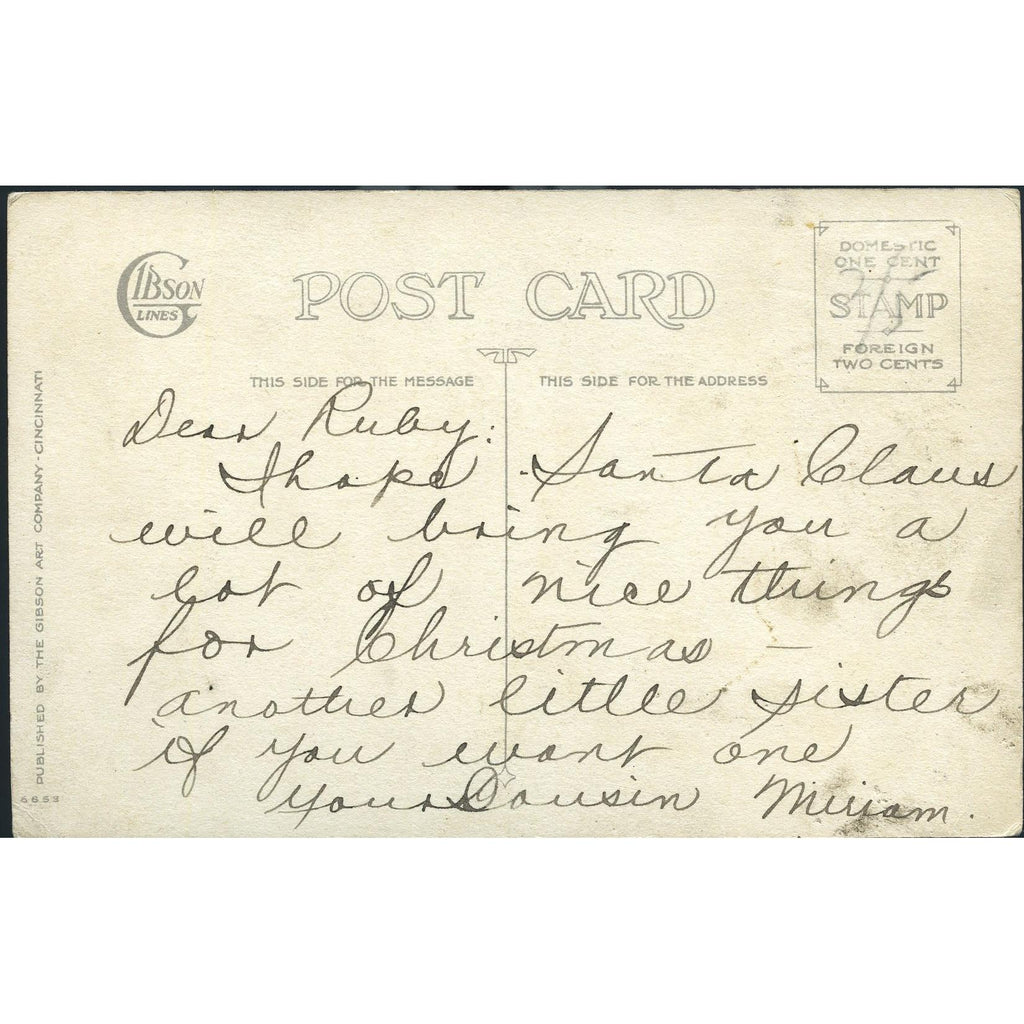 GIBSON
LINES
POST CARD
DOMESTIC
ONE CENT
STAMP
FOREIGN
TWO CENTS
THIS SIDE FOR THE MESSAGE
THIS SIDE FOR THE ADDRESS
Dear Ruby:
I hope Santa Claus
will bring you a
lot of nice things
for Christmas —
another little sister
if you want one
Your Cousin Miriam.
PUBLISHED BY THE GIBSON ART COMPANY - CINCINNATI
6653